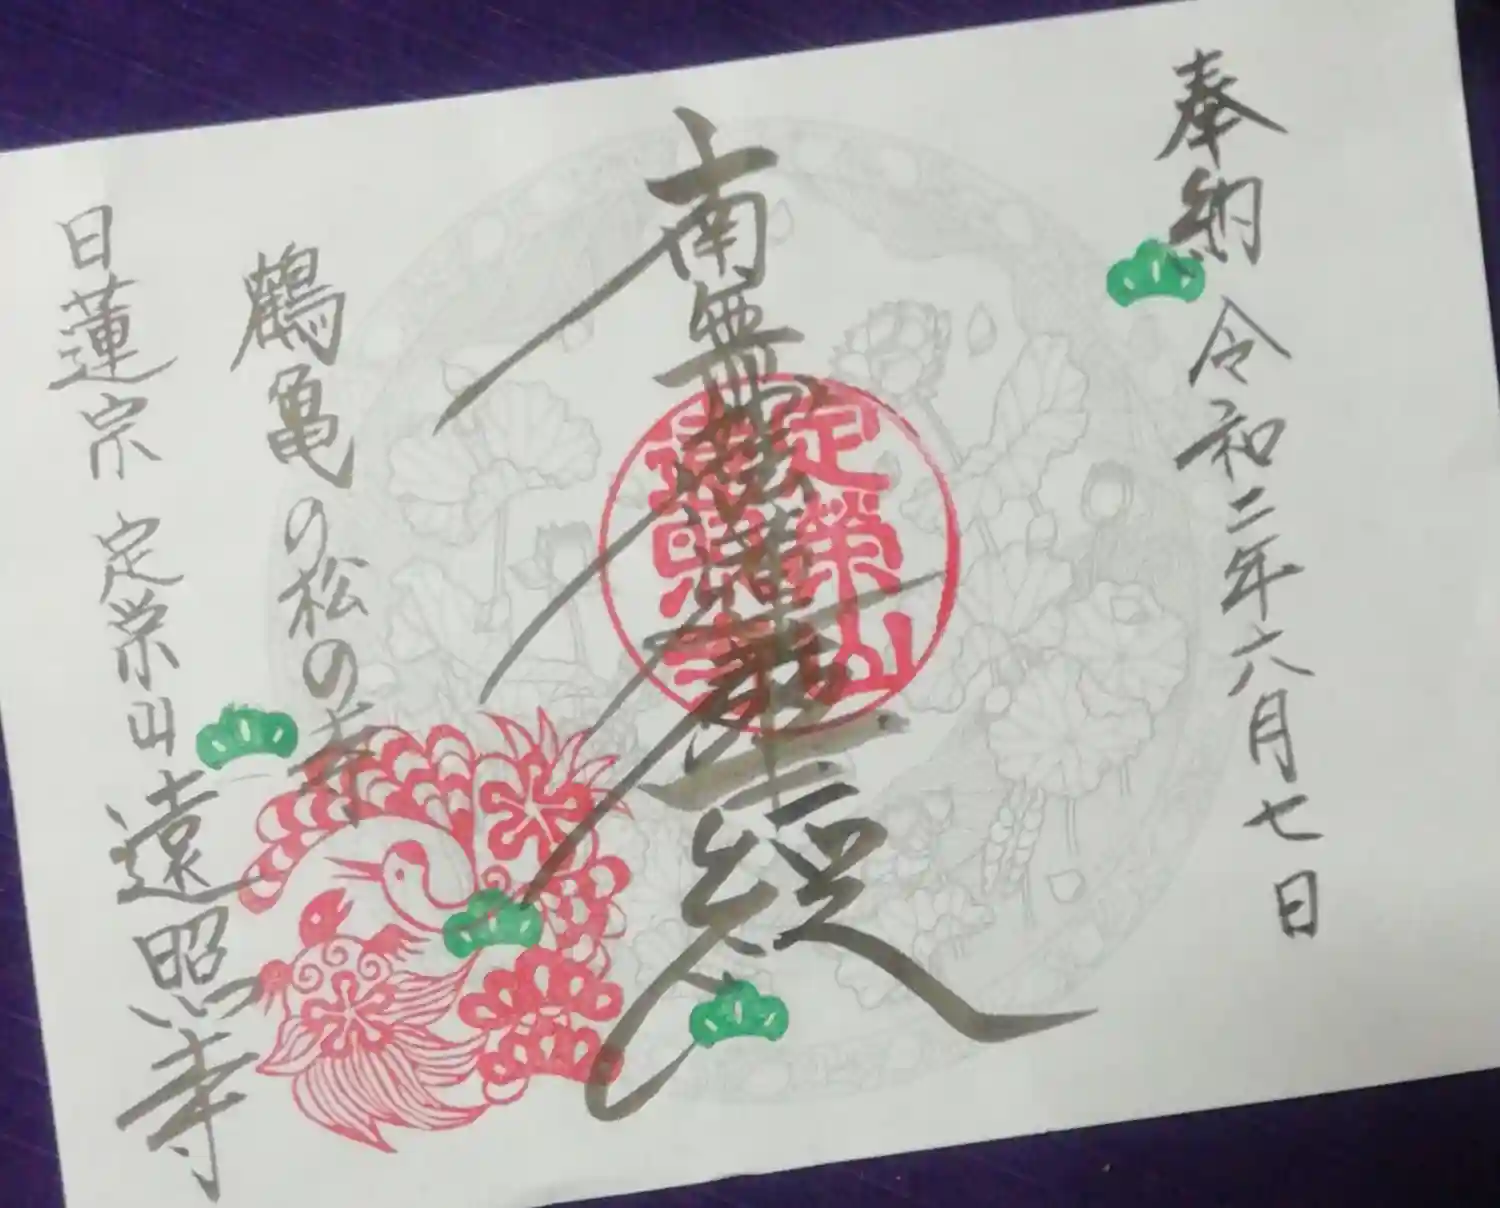 奉納 令和二年六月七日
南無妙法蓮華経
定栄山
遠照寺
鶴亀の松の寺
日蓮宗 定栄山 遠照寺